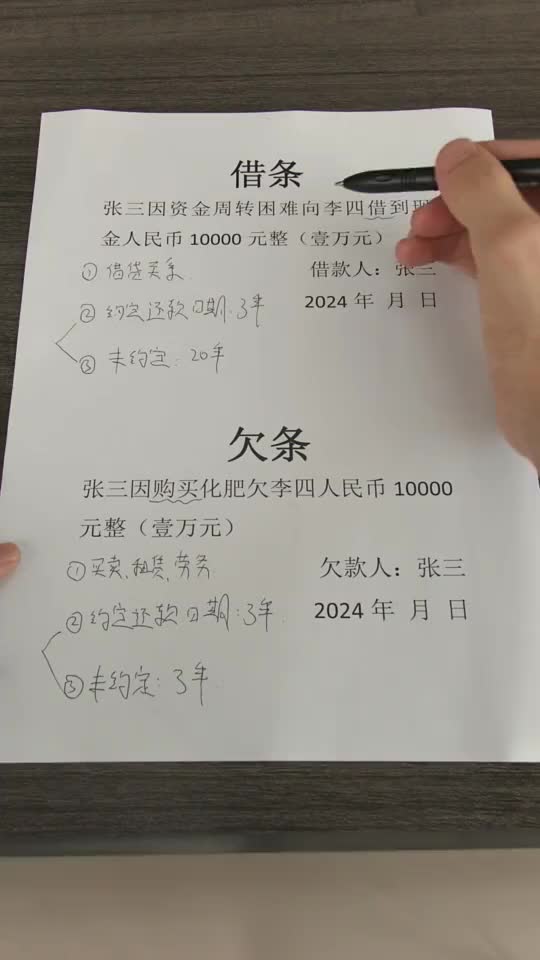 借条
张三因资金周转困难向李四借到现
金人民币 10000 元整（壹万元）
① 借贷关系
借款人：张三
② 约定还款日期：3年
2024 年 月 日
③ 未约定：20年
欠条
张三因购买化肥欠李四人民币 10000
元整（壹万元）
① 买卖、租赁、劳务
欠款人：张三
② 约定还款日期：3年
2024 年 月 日
③ 未约定：3年